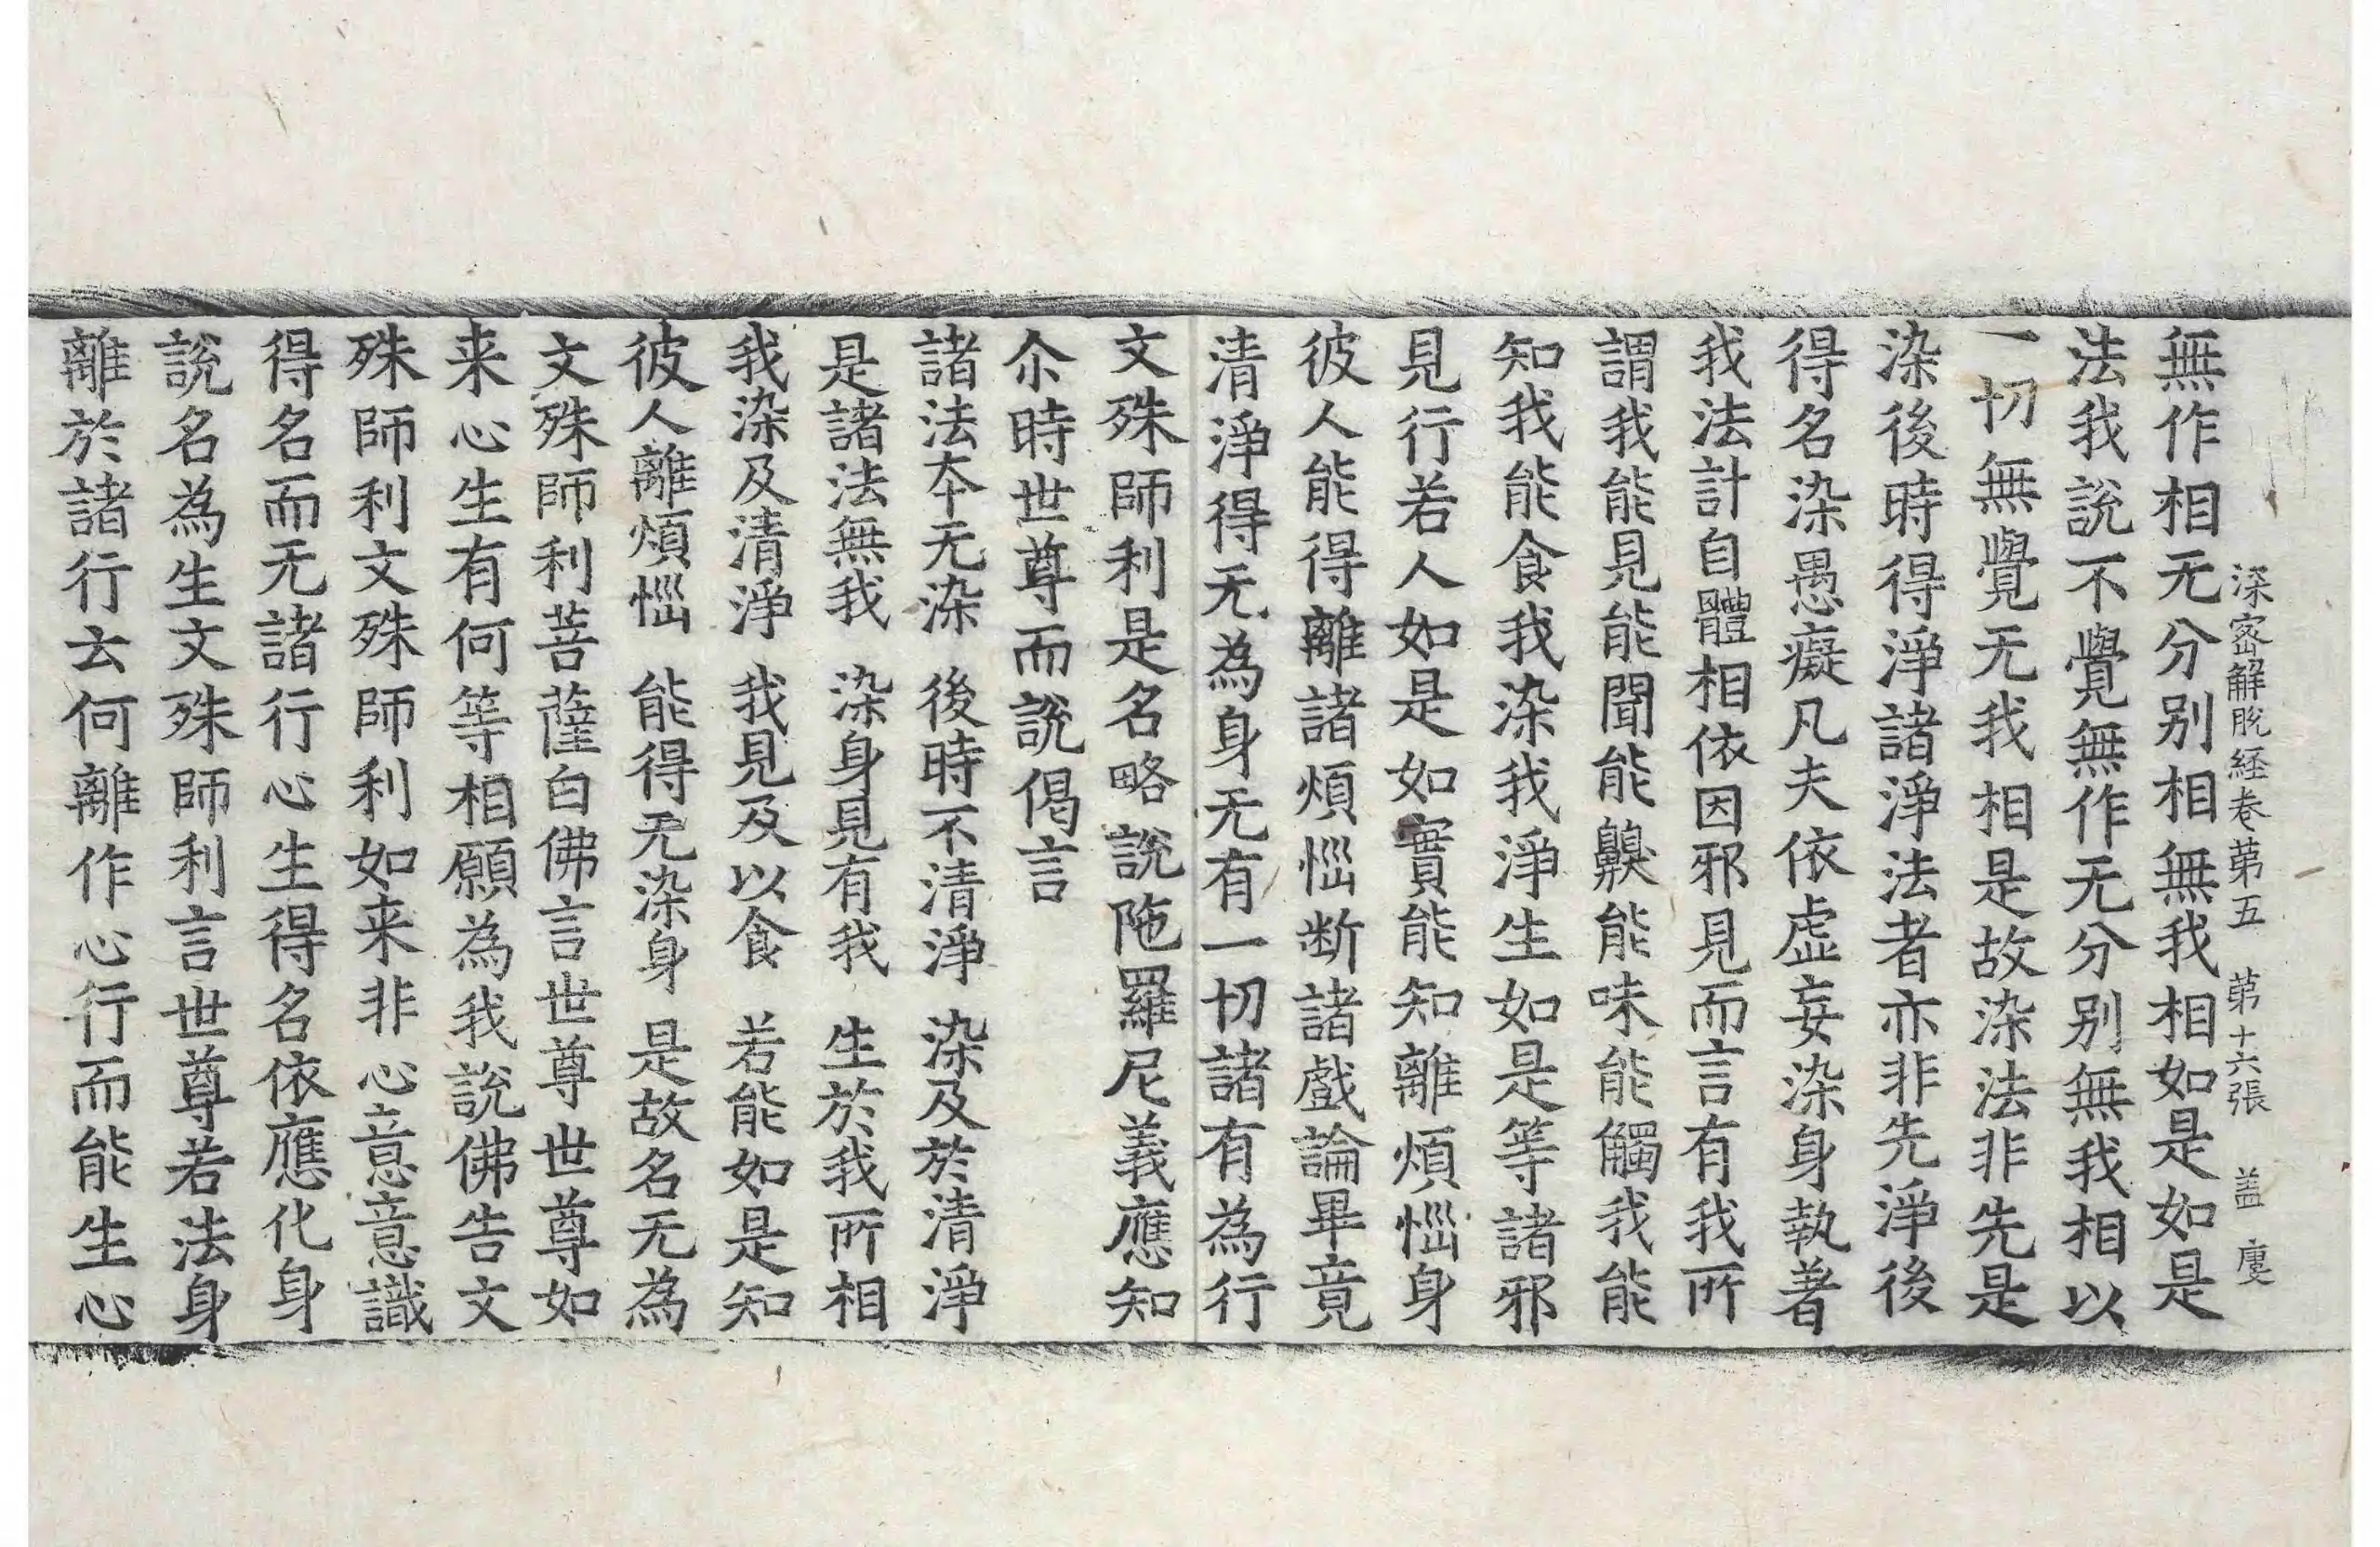 深密解脫経卷苐五 苐十六張 盖
無作相无分别相無我相如是如是
法我說不覺無作无分别無我相以
一切無覺无我相是故染法非先是
染後時得淨諸淨法者亦非先淨後
得名染愚癡凡夫依虛妄染身執著
我法計自體相依因邪見而言有我所
謂我能見能聞能齅能味能觸我能
知我能食我染我淨生如是等諸邪
見行若人如是如實能知離煩惱身
彼人能得離諸煩惱断諸戲論畢竟
清淨得无為身无有一切諸有為行
文殊師利是名略說陁羅尼義應知
尒時世尊而說偈言
諸法夲无染 後時不清淨 染及於清淨
是諸法無我 染身見有我 生於我所相
我染及清淨 我見及以食 若能如是知
彼人離煩惱 能得无染身 是故名无為
文殊師利菩薩白佛言世尊世尊如
来心生有何等相願為我說佛告文
殊師利文殊師利如来非心意意識
得名而无諸行心生得名依應化身
說名為生文殊師利言世尊若法身
離於諸行云何離作心行而能生心